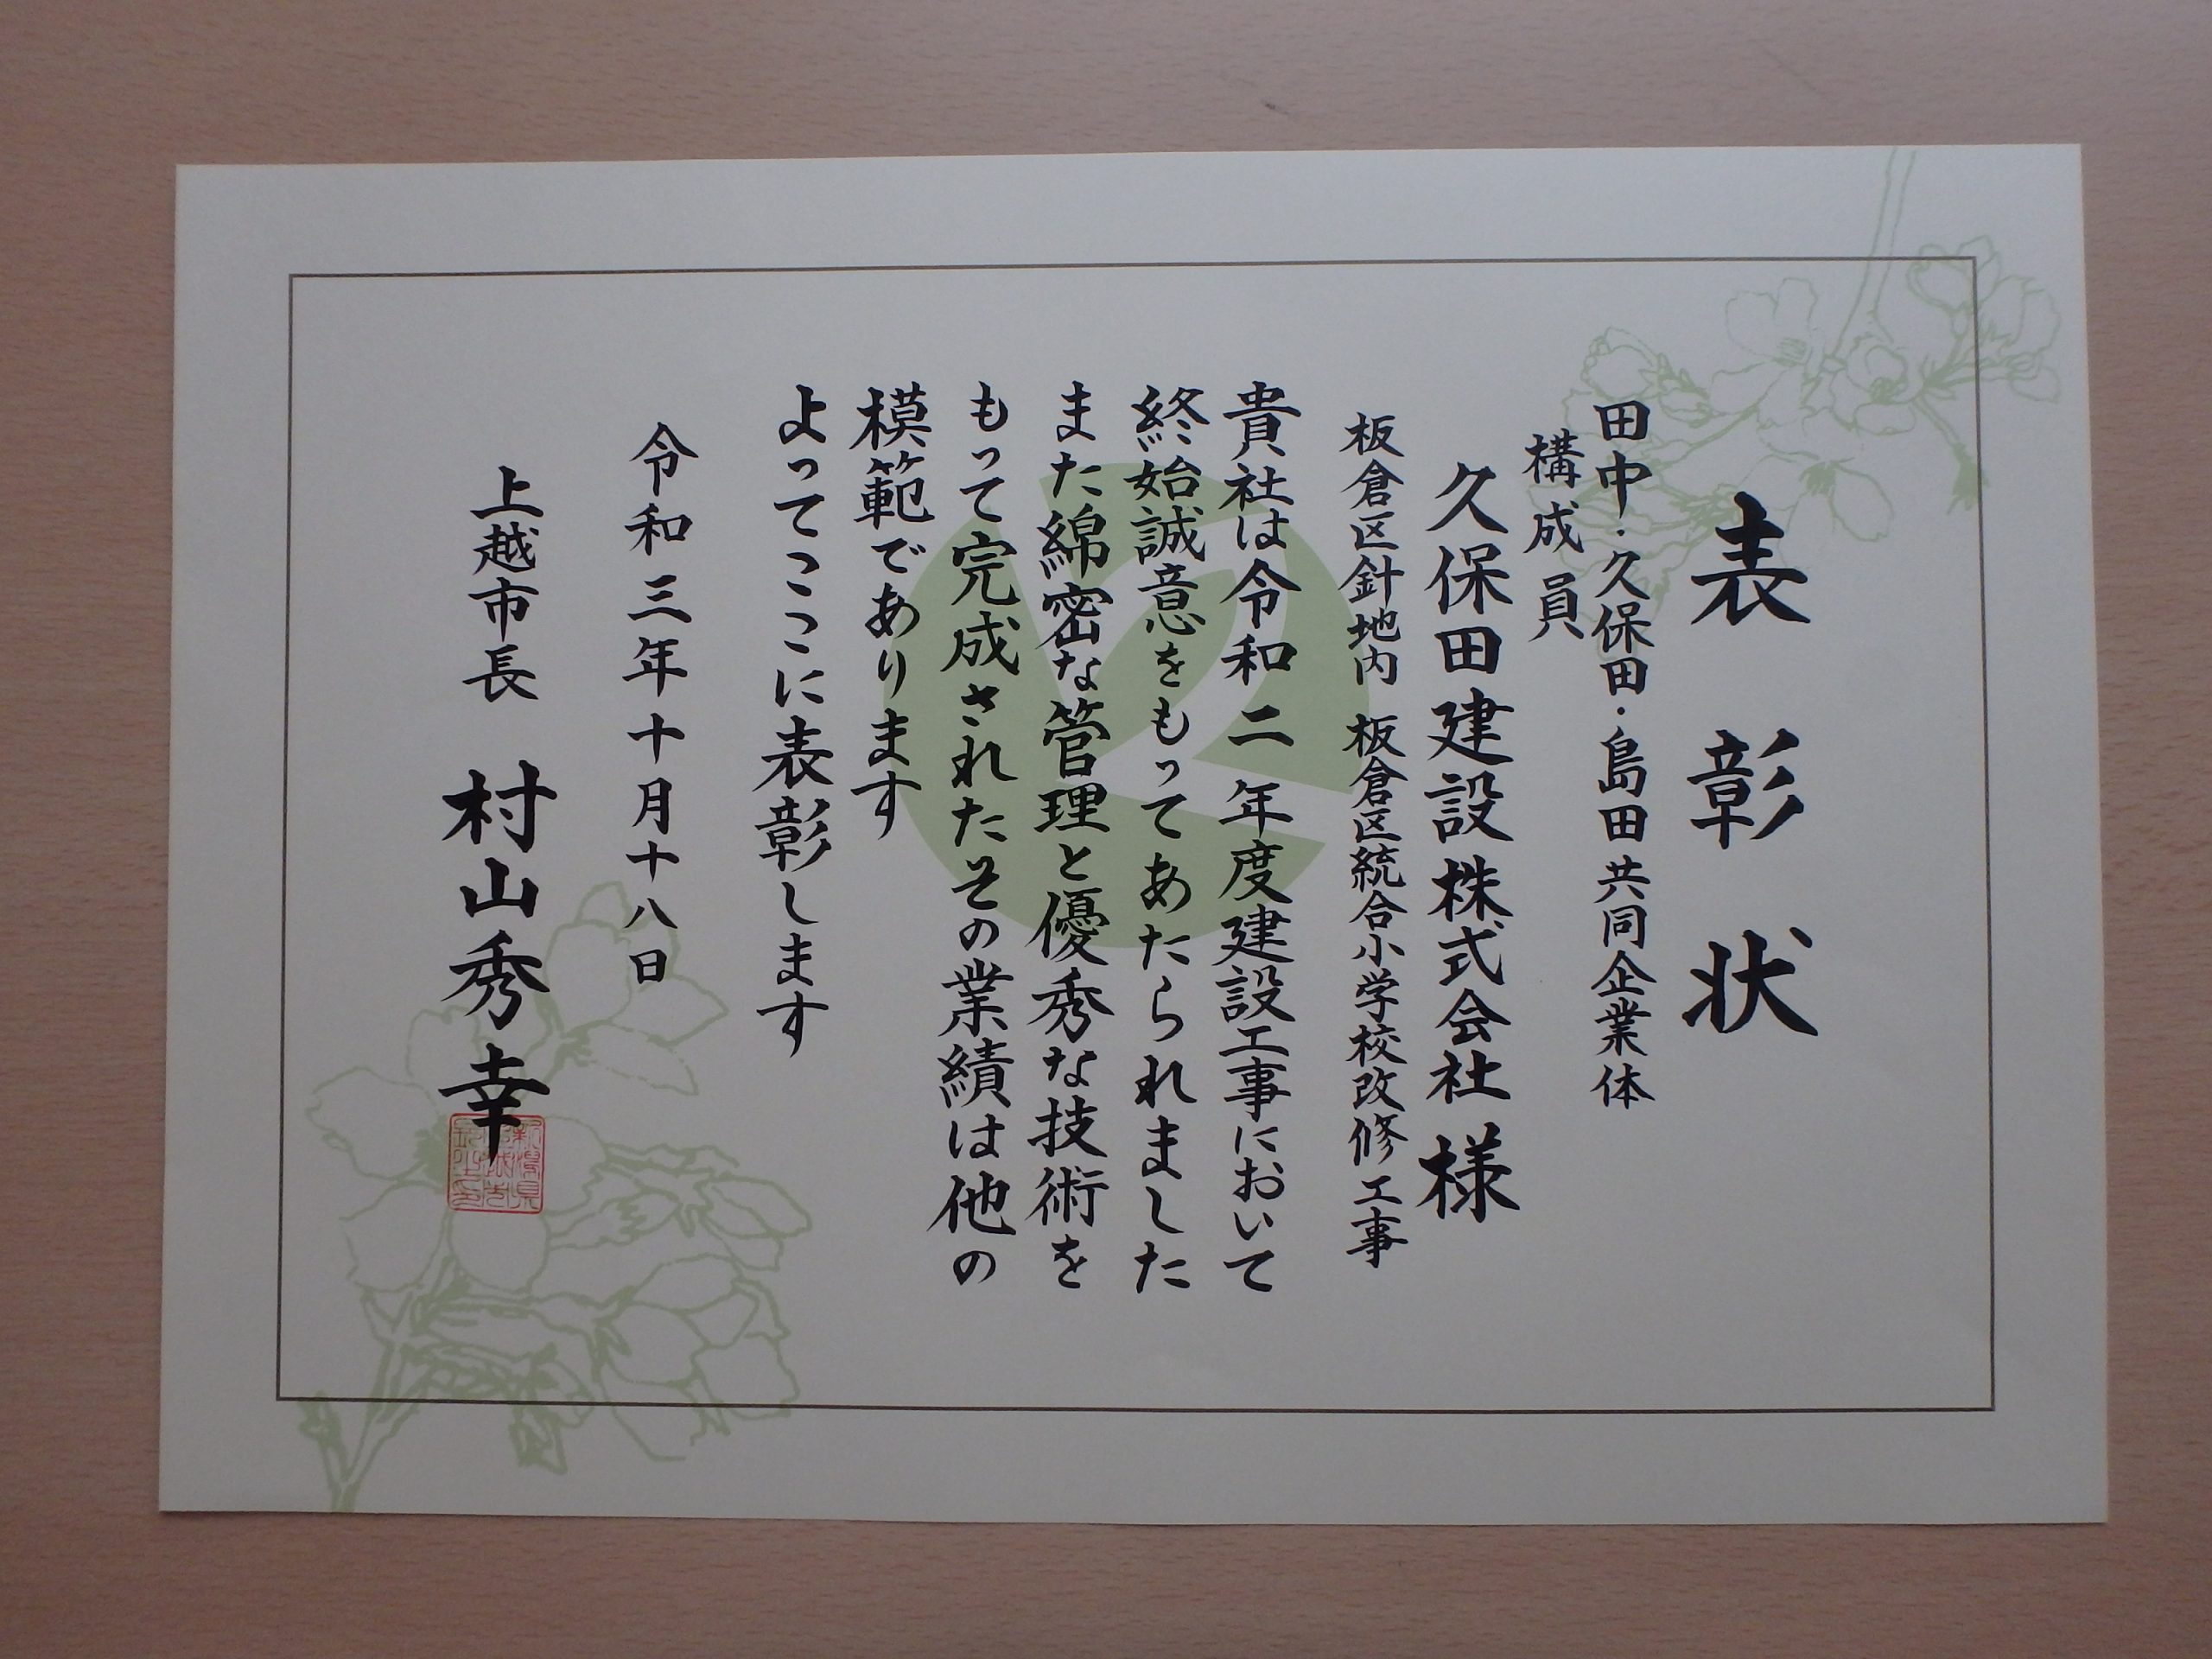 表彰状
田中・久保田・島田共同企業体
構成員
久保田建設株式会社様
板倉区針地内 板倉区統合小学校改修工事
貴社は令和二年度建設工事において
終始誠意をもってあたられました
また綿密な管理と優秀な技術を
もって完成されたその業績は他の
模範であります
よってここに表彰します
令和三年十月十八日
上越市長 村山秀幸